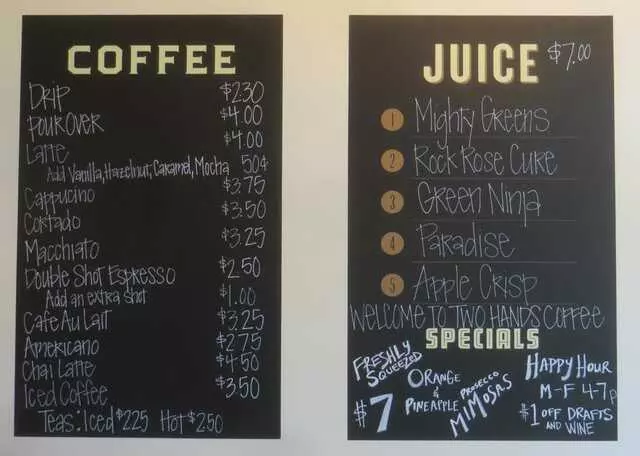 COFFEE
Drip $2.30
Pour Over $4.00
Latte $4.00
Add Vanilla, Hazelnut, Caramel, Mocha 50¢
Cappucino $3.75
Cortado $3.50
Macchiato $3.25
Double Shot Espresso $2.50
Add an extra shot $1.00
Cafe Au Lait $3.25
Americano $2.75
Chai Latte $4.50
Iced Coffee $3.50
Teas: Iced $2.25 Hot $2.50
JUICE $7.00
1 Mighty Greens
2 Rock Rose Cure
3 Green Ninja
4 Paradise
5 Apple Crisp
WELCOME TO TWO HANDS COFFEE
SPECIALS
FRESHLY
SQUEEZED
ORANGE
&
PINEAPPLE
PROSECCO
MIMOSAS
$7
HAPPY HOUR
M-F 4-7p
$1 OFF DRAFTS
AND WINE